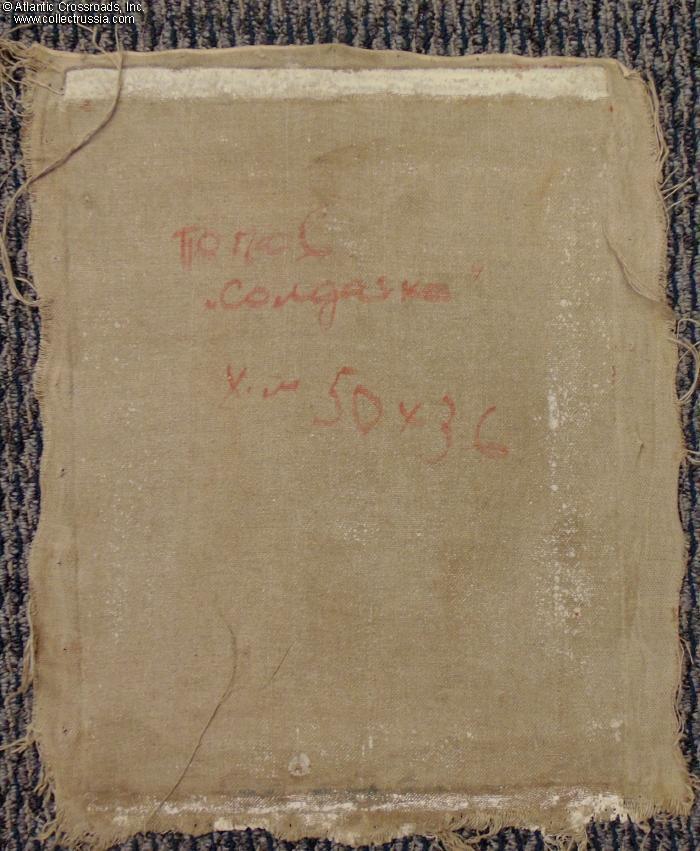 © Atlantic Crossroads, Inc.
www.collectrussia.com
Попов
„Солдатка"
х.м 50х36